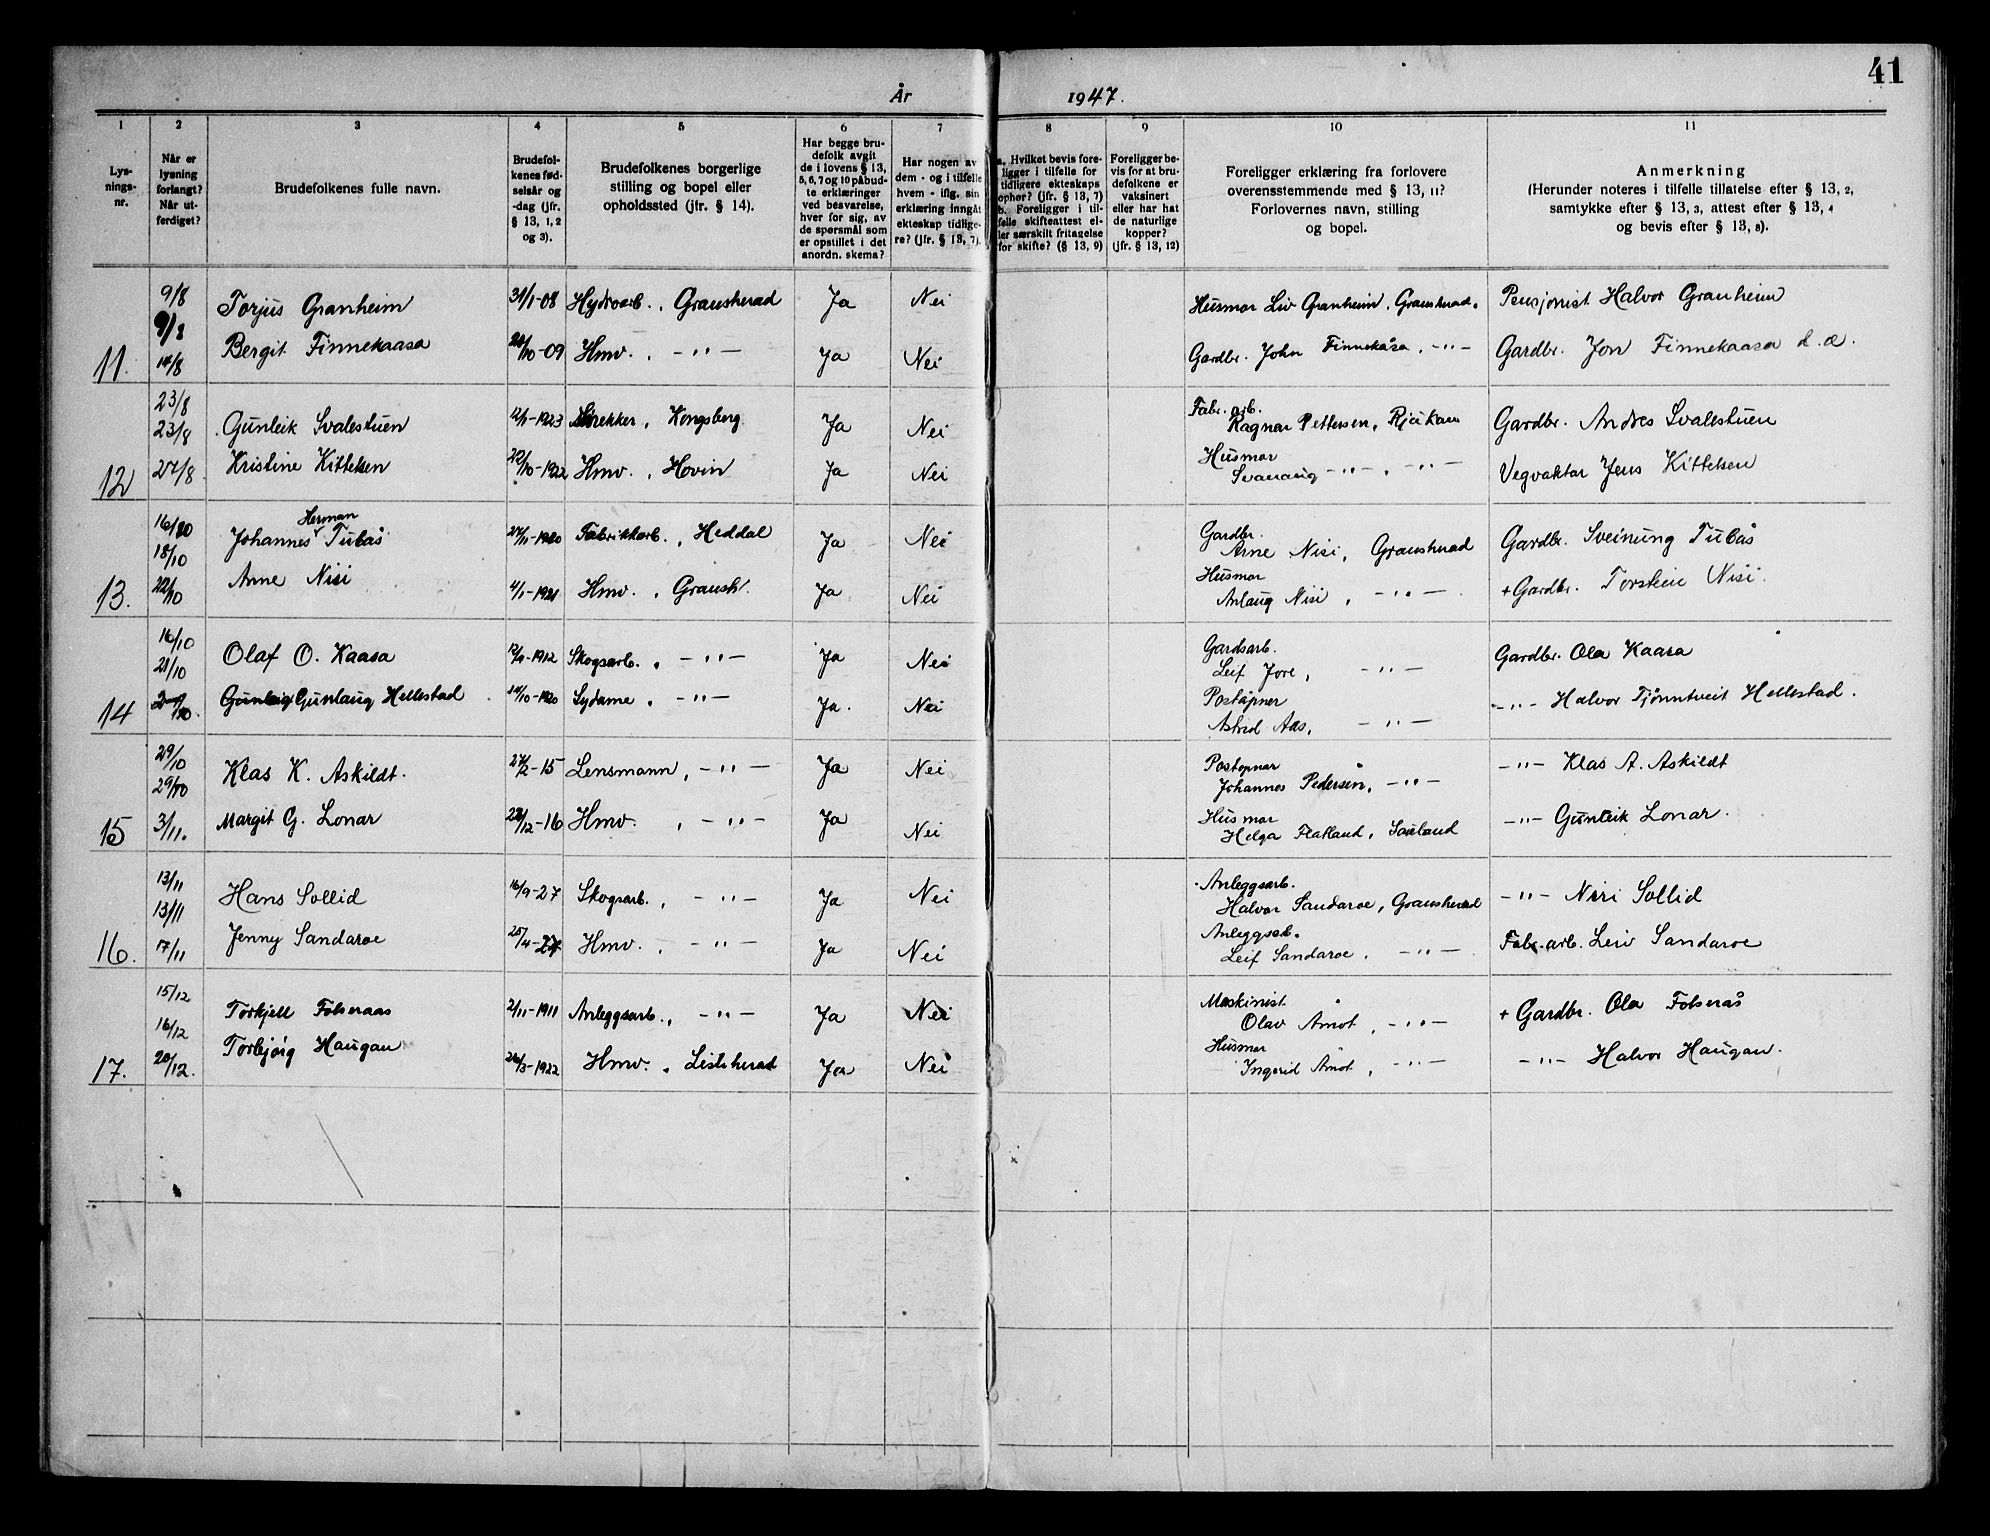 41
År 1947.
1 2 3 4 5 6 7 8 9 10 11
Lys-
nings-
nr.
Når er
lysning
forlangt?
Når ut-
ferdiget?
Brudefolkenes fulle navn.
Brudefol-
kenes fød-
selsår og
-dag (jfr.
§ 13, 1, 2
og 3).
Brudefolkenes borgerlige
stilling og bopel eller
opholdssted (jfr. § 14).
Har begge bru-
defolk avgit
de i lovens § 13,
5, 6, 7 og 10 påbud-
te erklæringer
ved besvarelse,
hver for sig, av
de spørsmål som
er opstillet i det
anordn. skema?
Har nogen av
dem - og i tilfelle
hvem - iflg. sin
erklæring inngåt
ekteskap tidlige-
re? (jfr. § 13, 7).
a. Hvilket bevis fore-
ligger i tilfelle for
tidligere ekteskaps
ophør? (jfr. § 13, 7)
b. Foreligger i til-
felle skifteattest el-
ler særskilt fritagelse
for skifte? (§ 13, 9)
Foreligger be-
vis for at bru-
defolkene er
vaksinert
eller har hat
de naturlige
kopper?
(jfr. § 13, 12)
Foreligger erklæring fra forlovere
overensstemmende med § 13, 11?
Forlovernes navn, stilling
og bopel.
Anmerkning
(Herunder noteres i tilfelle tillatelse efter § 13, 2,
samtykke efter § 13, 3, attest efter § 13, 4
og bevis efter § 13, 8).
9/8 Torjus Granheim 31/1-08 Hydroarb., Gransherad Ja Nei Husmor Liv Granheim, Gransherad. Pensjonist Halvor Granheim
9/8
11. 14/8 Bergit Finnekaasa /10-09 Hmv., -"- Ja Nei Gardbr. John Finnekåsa, -"- Gardbr. Jon Finnekaasa d.æ.
23/8
23/8 Gunleik Svalestuen 12/1-1923 , Kongsberg Ja Nei Fabr.arb. Ragnar Pettersen, Rjukan Gardbr. Andres Svalestuen
12 27/8 Kristine Kittelsen 22/10-1922 Hmv., Hovin Ja Nei Husmor Svanaug -"-, -"- Vegvaktar Jens Kittelsen
16/10
18/10 Johannes Herman Tubås 27/11-1920 Fabrikkarb., Heddal Ja Nei Gardbr. Arne Nisi, Gransherad Gardbr. Sveinung Tubås
13. 22/10 Anne Nisi 4/1-1921 Hmv., Gransh. Ja Nei Husmor Anlaug Nisi, -"- + Gardbr. Torstein Nisi.
16/10
21/10 Olaf O. Kaasa 12/9-1912 Skogsarb., -"- Ja Nei Gardsarb. Leif Jore, -"- Gardbr. Ola Kaasa
14 Gunlaug Hellestad 14/10-1920 Sydame, -"- Ja. Nei Poståpner Astrid Aas, -"- -"- Halvor Tjønntveit Hellestad.
29/10
29/10 Klas K. Askildt. 27/2-15 Lensmann, -"- Ja Nei Postopnar Johannes Pedersen, -"- -"- Klas A. Askildt
15 3/11. Margit G. Lonar 28/12-16 Hmv., -"- Ja Nei Husmor Helga Flatland, Sauland -"- Gunleik Lonar.
13/11
13/11 Hans Sollid 16/9-27 Skogsarb., -"- Ja Nei Anleggsarb. Halvor Sandaroe, Gransherad -"- Niri Sollid
16. 17/11 Jenny Sandaroe 25/4-27 Hmv., -"- Ja Nei Anleggsarb. Leif Sandaroe, -"- Fabr.arb. Leiv Sandaroe
15/12
16/12 Torkjell Folseraas 2/11-1911 Anleggsarb., -"- Ja Nei Maskinist Olav Åmot, -"- + Gardbr. Ola Folserås
17. 20/12. Torbjørg Haugan 26/3-1922 Hmv., Lisleherad Ja Nei Husmor Ingerid Åmot, -"- -"- Halvor Haugan.